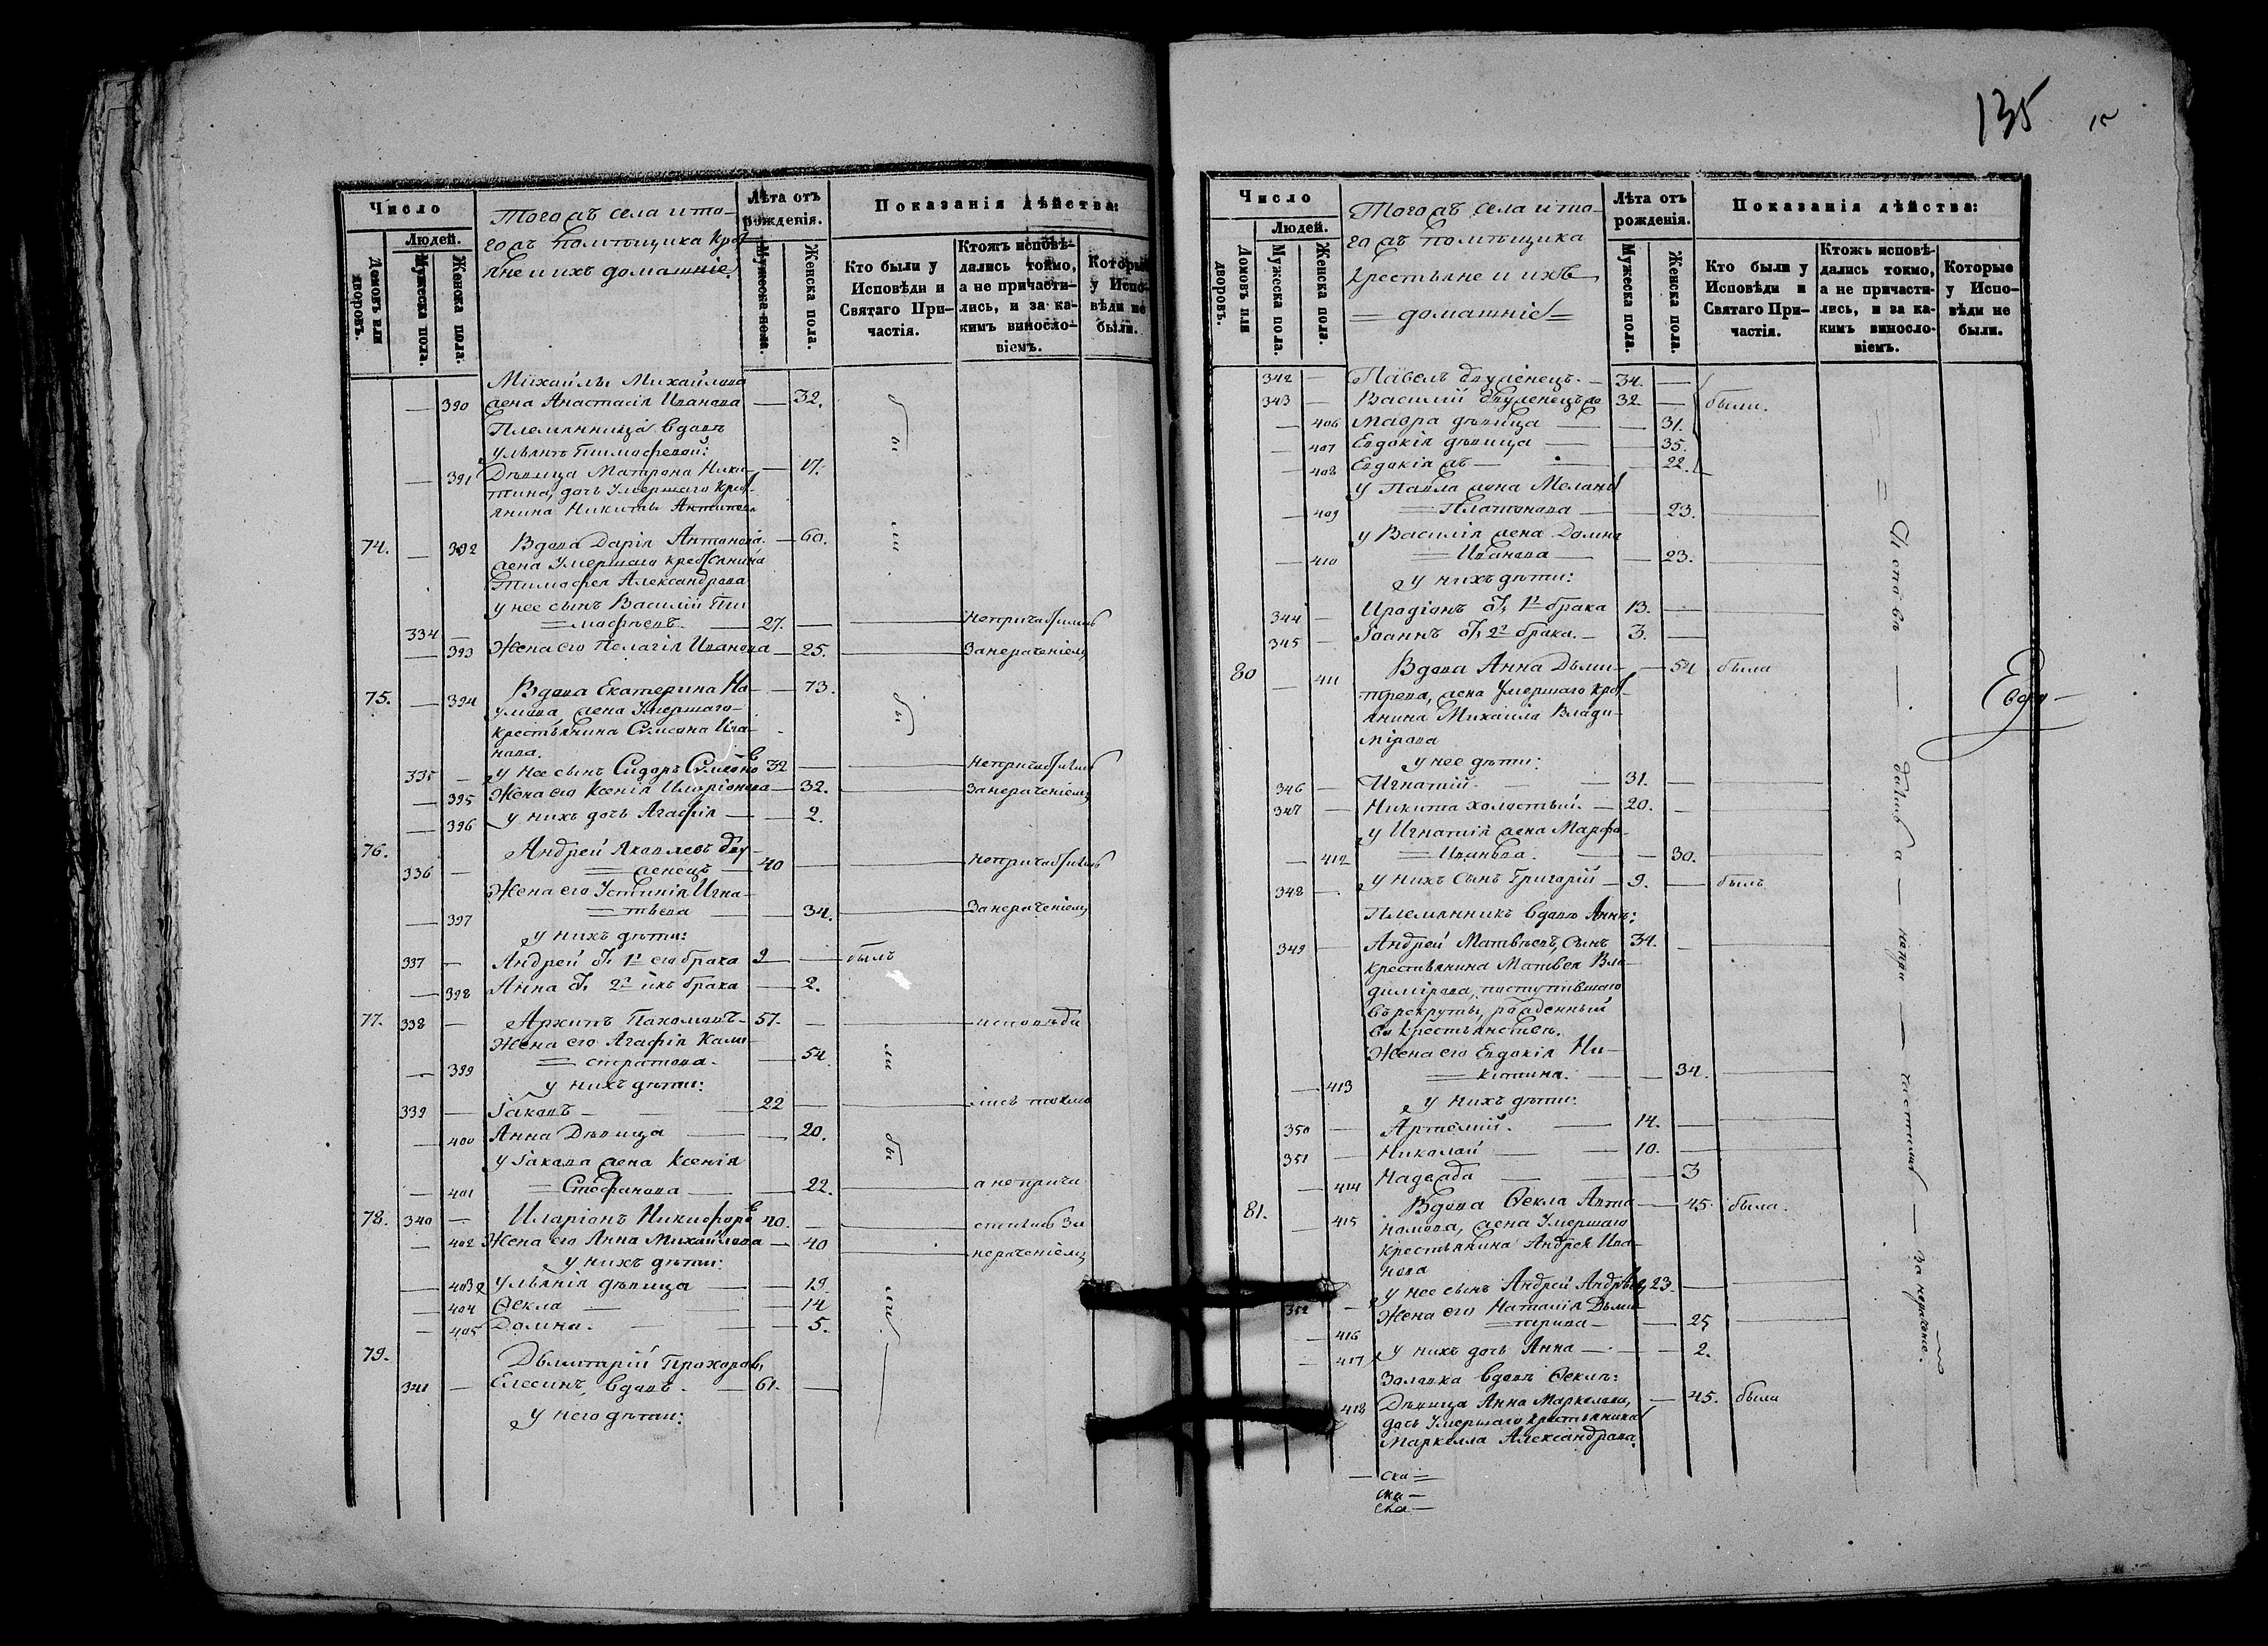 135
Число
Людей.
Домовъ или дворовъ.
Мужеска пола.
Женска пола.
Тогожъ села и то-
гожъ помѣщика крест
яне и ихъ домашніе
Лѣта отъ рожденія.
Мужеска пола.
Женска пола.
Показанія дѣйства:
Кто были у Исповѣди и Святаго При-частія.
Ктожъ исповѣ-дались токмо, а не причасти-лись, и за ка-кимъ винносло-віемъ.
Которые у Испо-вѣди не были.
Михайлы Михайлова
390 жена Анастасія Иванова — 32.
Племянница вдовы
Ульяны Тимофеевой:
391 Дѣвица Матрона Ники- — 17.
тина, дочь умершаго крест
янина Никиты Антипова
74. — 392 Вдова Дарія Антонова. — 60.
жена умершаго крестьянина
Тимофея Александрова
у нее сынъ Василій Ти
334 — мофѣевъ. — 27. — непричастились
393 Жена его Пелагія Иванова — 25. за нерачениемъ
75. — 394 Вдова Екатерина На- — 73.
умова, жена умершаго
крестьянина Сумеона Ива-
нова.
335 — у нее сынъ Сидоръ Сумеоновъ 32 — непричастились
395 Жена его Ксенія Иларіонова — 32. за нерачениемъ
396 у нихъ дочь Агафія — 2.
76. Андрей Яковлевъ дву-
336 — женецъ — 40 — непричастились
Жена его Устинія Игна-
397 тьева — 34. за нерачениемъ
у нихъ дѣти:
337 — Андрей отъ 1го его брака 9 — былъ
398 Анна отъ 2го ихъ брака — 2.
77. 338 — Архипъ Пахомовъ — 57. — исповѣда
Жена его Агафія Кали-
399 стратова. — 54.
у нихъ дѣти:
339 — Іаковъ — 22 — лись токмо
400 Анна дѣвица — 20.
у Іакова жена Ксенія
401 Стефанова — 22. — а непричи
78. 340 — Иларіонъ Никифоровъ 40. — стились за
402 Жена его Анна Михайлова — 40 нерачениемъ
у нихъ дѣти:
403 Ульянія дѣвица — 19.
404 Ѳекла — 14
405 Домна. — 5.
79. Дьмитрій Прохоровъ
341 — Елесинъ, вдовъ. — 61. —
у него дѣти:
бы
ли
бы
ли
бы
ли.
Число
Людей.
Домовъ или дворовъ.
Мужеска пола.
Женска пола.
Тогожъ села и то-
гожъ помѣщика
крестьяне и ихъ
домашніе
Лѣта отъ рожденія.
Мужеска пола.
Женска пола.
Показанія дѣйства:
Кто были у Исповѣди и Святаго При-частія.
Ктожъ исповѣ-дались токмо, а не причасти-лись, и за ка-кимъ винносло-віемъ.
Которые у Испо-вѣди не были.
342 — Павелъ двуженецъ. — 34. —
343 — Василій двуженецъ 32 — были.
406 Мавра дѣвица — 31.
407 Евдокія дѣвица — 35.
408 Евдокія жъ — 22.
у Павла жена Меланья
409 Платонова — 23.
у Василія жена Домна
410 Иванова — 23.
у нихъ дѣти:
344 — Иродіонъ отъ 1го брака 13. —
345 — Іоаннъ отъ 2го брака. — 3. —
80 — 411 Вдова Анна Дьми- — 54 была
трева, жена умершаго крест
янина Михаила Влади-
мірова
у нее дѣти:
346 — Игнатій. — 31. —
347 — Никита холостый. — 20. —
у Игнатія жена Марфа
412 Иванова. — 30.
348 — у нихъ сынъ Григорій — 9. — былъ
Племянникъ вдовы Анны:
349 — Андрей Матвѣевъ, сынъ 34. —
крестьянина Матвея Вла-
димірова, поступившаго
въ рекруты, рожденный
въ крестьянствѣ.
Жена его Евдокія Ни-
413 китина. — 34.
у нихъ дѣти:
350 — Артемій. — 14. —
351 — Николай — 10. —
414 Надежда — 3
81. — 415 Вдова Ѳекла Авто- — 45. была.
номова, жена умершаго
крестьянина Андрея Ива-
нова
352 — у нее сынъ Андрей Андрѣевъ 23 —
Жена его Наталія Дьми-
416 тріева — 25
417 у нихъ дочь Анна — 2.
Золовка вдовы Ѳеклы:
418 Дѣвица Анна Маркелова, — 45. была
дочь умершаго крестьянина
Маркелла Александрова.
Исповѣ — дались а — непри — частились — за нерачение.
Евдо-